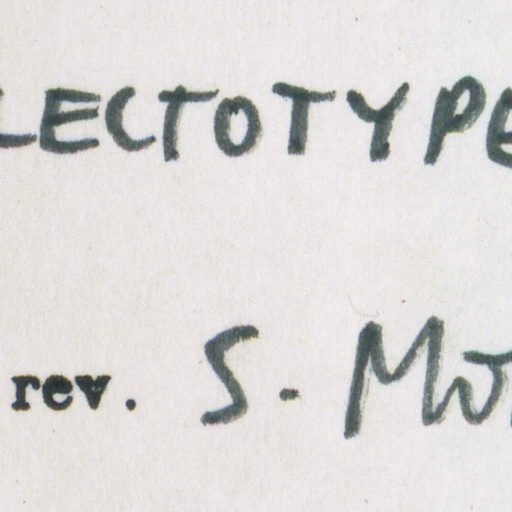 LECTOTYPE
rev. S. Mo